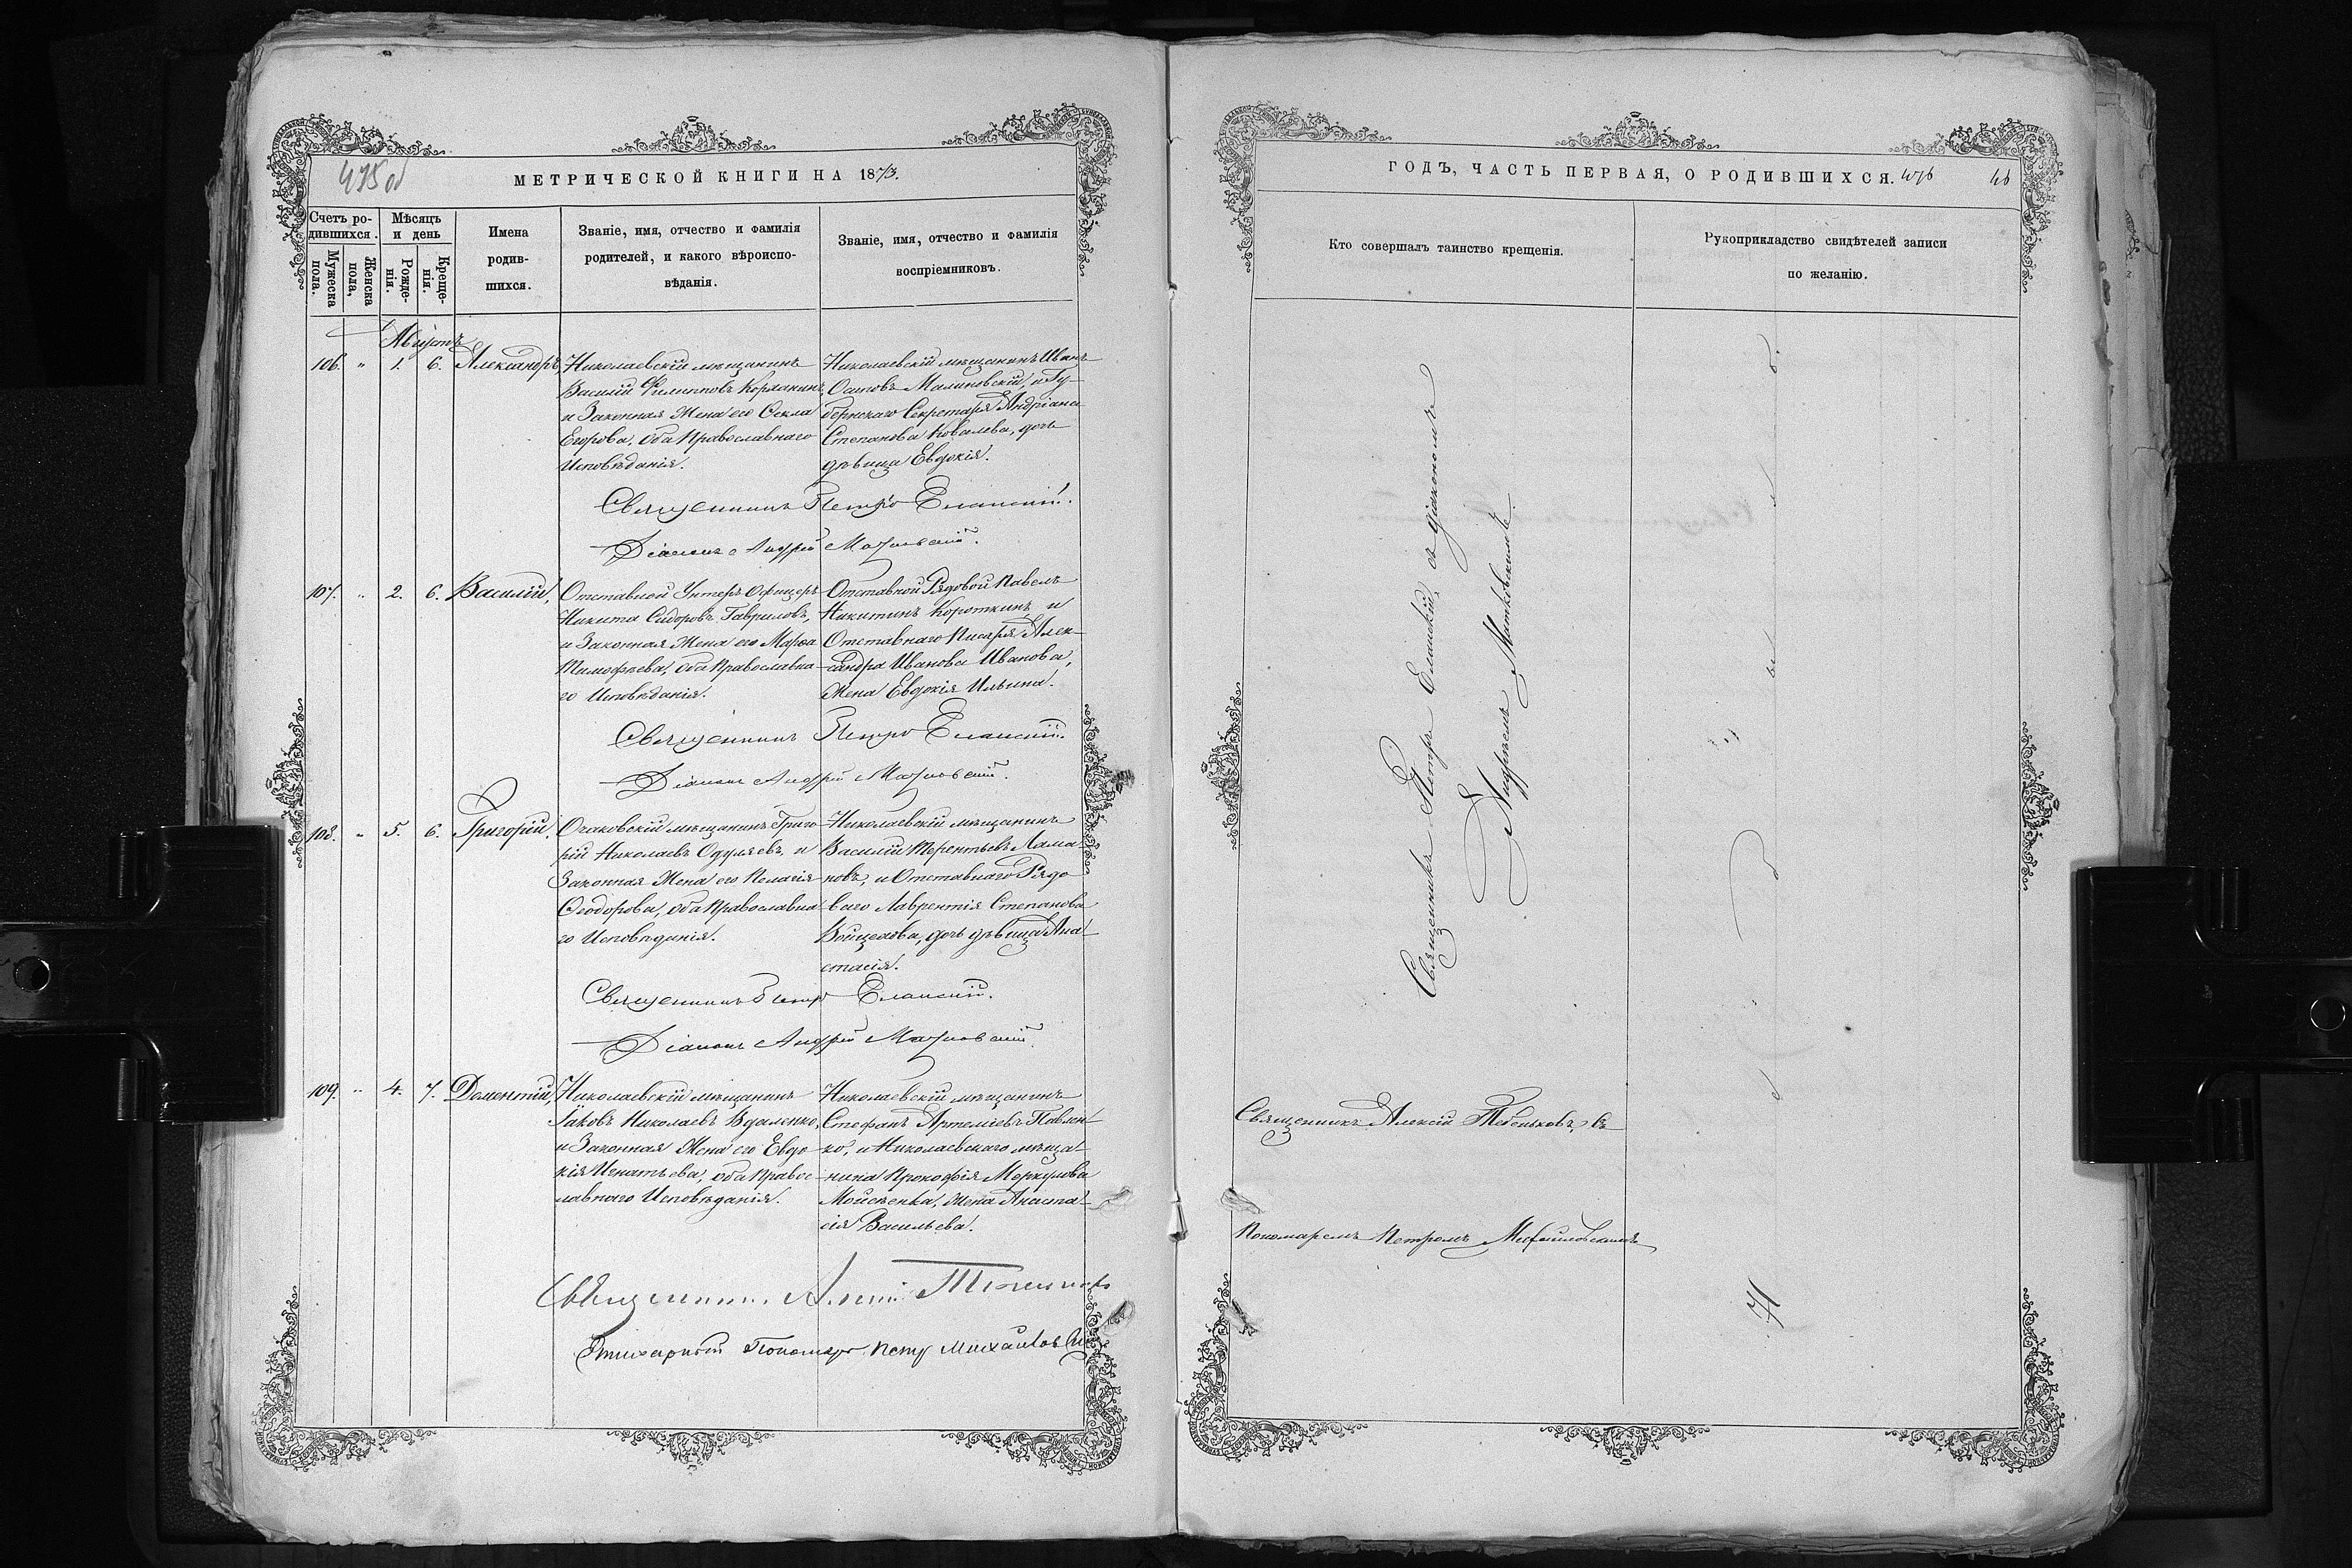 495 об
МЕТРИЧЕСКОЙ КНИГИ НА 1873.
Счетъ ро-
дившихся.
Мужеска
пола.
Женска
пола.
Мѣсяцъ
и день
Рожде-
нія.
Креще-
нія.
Имена
родив-
шихся.
Званіе, имя, отчество и фамилія
родителей, и какого вѣроиспо-
вѣданія.
Званіе, имя, отчество и фамилія
воспріемниковъ.
Августъ
106. " 1. 6. Александръ,
Николаевскій мѣщанинъ
Василій Филипповъ
и Законная Жена его Ѳекла
Егорова, оба Православнаго
Исповѣданія.
Николаевскій мѣщанинъ Иванъ
Осиповъ Малиновскій, и Гу-
бернскаго Секретаря Андріана
Степанова Ковалева, дочь
дѣвица Евдокія.
Священникъ Петръ Еланскій.
Діаконъ Андрей
107. " 2. 6. Василій,
Отставной Унтеръ Офицеръ
Никита Сидоровъ Гавриловъ,
и Законная Жена его Марѳа
Тимофѣева, оба Православна-
го Исповѣданія.
Отставной Рядовой Павелъ
Никитинъ Короткинъ, и
Отставнаго Писаря Алек-
сандра Иванова Иванова,
Жена Евдокія Ильина.
Священникъ Петръ Еланскій.
Діаконъ Андрей
108. " 5. 6. Григорій,
Очаковскій мѣщанинъ Григо-
рій Николаевъ Одуляевъ, и
Законная Жена его Пелагія
Ѳеодорова, оба Православна-
го Исповѣданія.
Николаевскій мѣщанинъ
Василій Терентьевъ Лама-
новъ, и Отставнаго Рядо-
ваго Лаврентія Степанова
Войцехова, дочь дѣвица Ана-
стасія.
Священникъ Петръ Еланскій.
Діаконъ Андрей
109. " 4. 7. Доментій,
Николаевскій мѣщанинъ
Іаковъ Николаевъ Вдаленко,
и Законная Жена его Евдо-
кія Игнатьева, оба Правос-
лавнаго Исповѣданія.
Николаевскій мѣщанинъ
Стефанъ Артеміевъ Павлен-
ко, и Николаевскаго мѣща-
нина Прокофія Меркулова
Мойсѣенка, Жена Анаста-
сія Васильева.
Священникъ Алексій
Стихарный Пономарь Петр Михайловскій
ГОДЪ, ЧАСТЬ ПЕРВАЯ, О РОДИВШИХСЯ. 496
Кто совершалъ таинство крещенія.
Рукоприкладство свидѣтелей записи
по желанію.
Священникъ Петръ Еланскій, съ діакономъ
Андреемъ
Священникъ Алексій Тебеньковъ, съ
Пономаремъ Петромъ Михайловскимъ